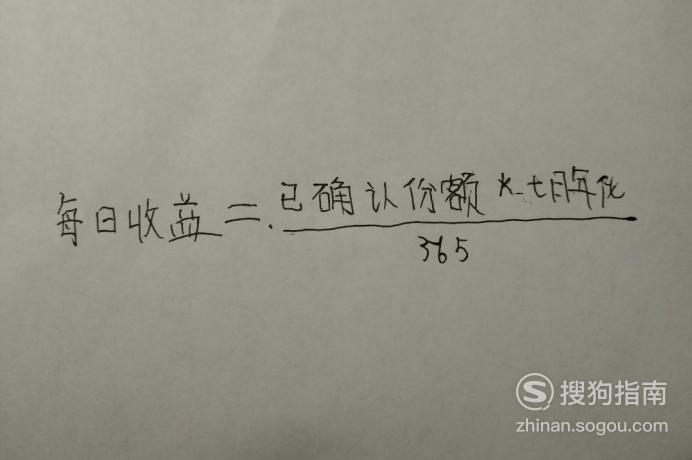 每日收益=已确认份额*七月年化
365
搜狗指南
zhinan.sogou.com